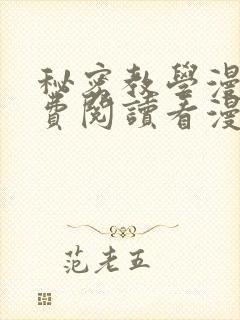 秘密教學漫
費閱讀看漫
范老五